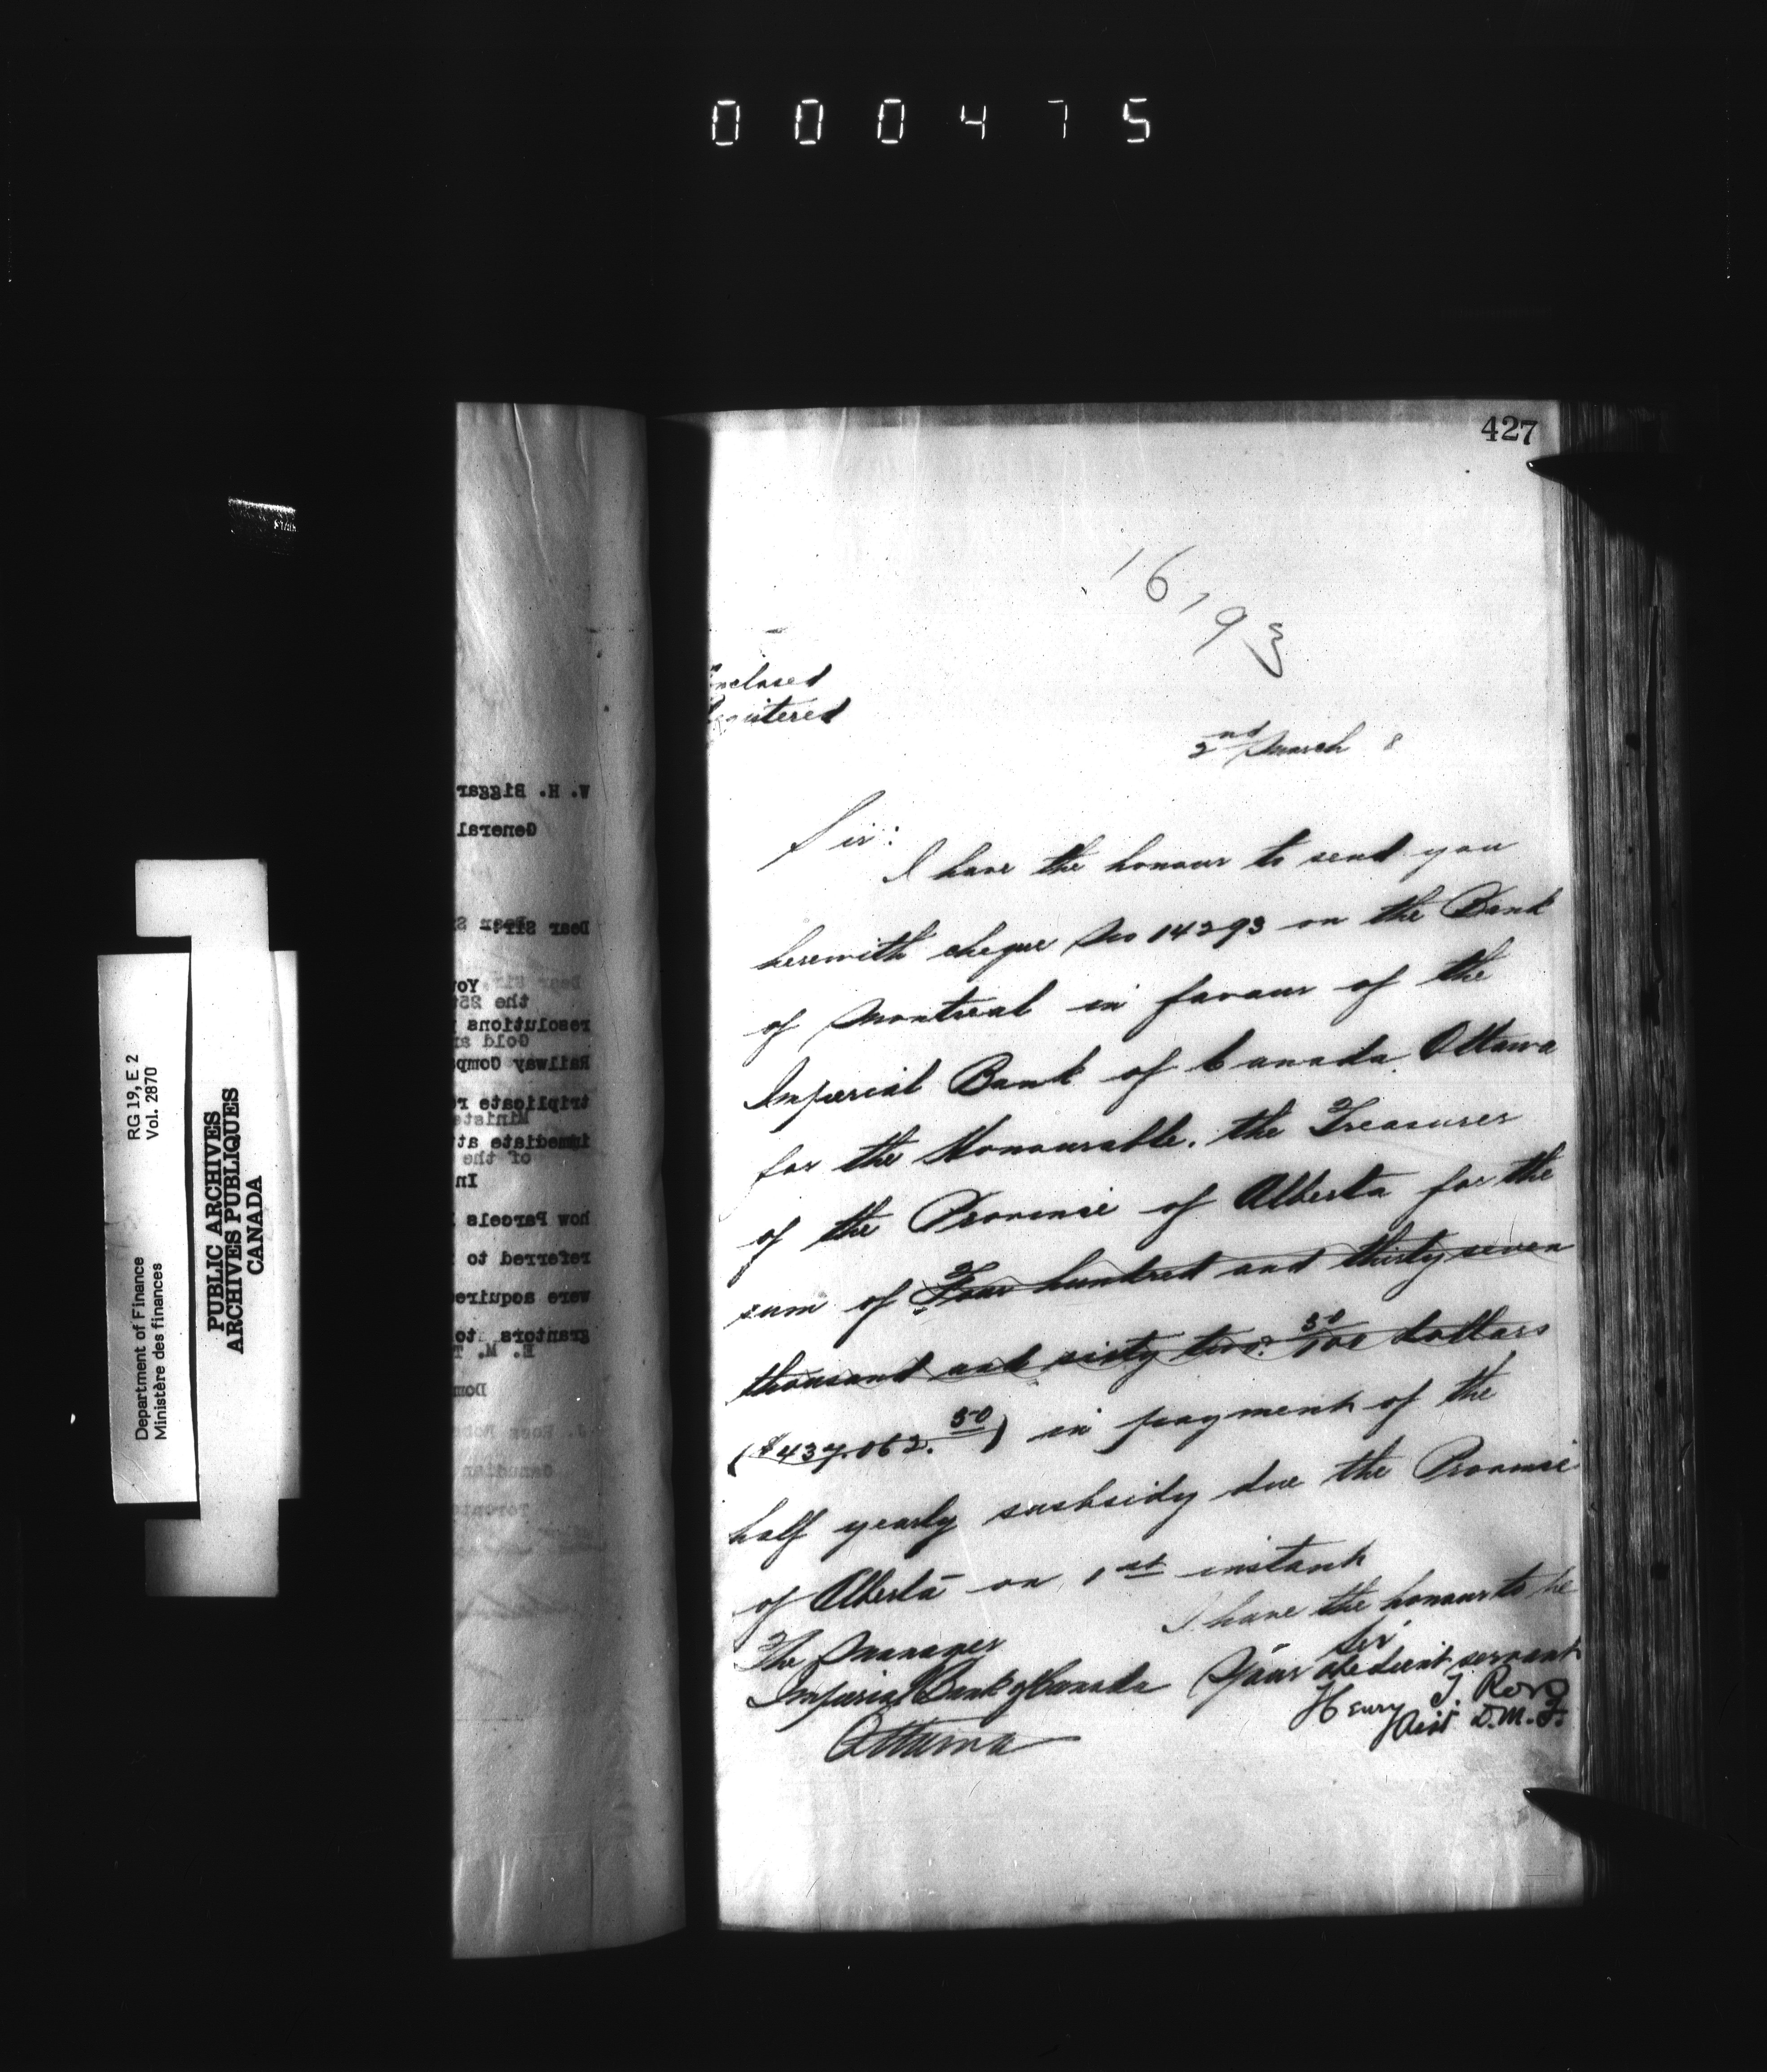 000475
427
16193
Enclosed
Registered
2nd March 8
Sir:
I have the honour to send you
herewith cheque No 14293 on the Bank
of Montreal in favour of the
Imperial Bank of Canada. Ottawa
for the Honourable. the Treasurer
of the Province of Alberta for the
sum of Four hundred and thirty seven
thousand and sixty two. 50/100 dollars
($437.062.50) in payment of the
half yearly subsidy due the Province
of Alberta on 1st instant
I have the honour to be
Sir
Your obedient servant
Henry T. Ross
Asst D.M.F.
The Manager
Imperial Bank of Canada
Ottawa
W. H. Biggar
General
Dear Sir
Dear Sir,
the 25t
resolutions
Gold a
Railway Comp
triplicate r
Ministe
immediate at
of the
In
how Parcels
referred to
were acquire
grantors to
E. M. T
Dom
Canadian
Toronto
Department of Finance
Ministère des finances
RG 19, E 2
Vol. 2870
PUBLIC ARCHIVES
ARCHIVES PUBLIQUES
CANADA